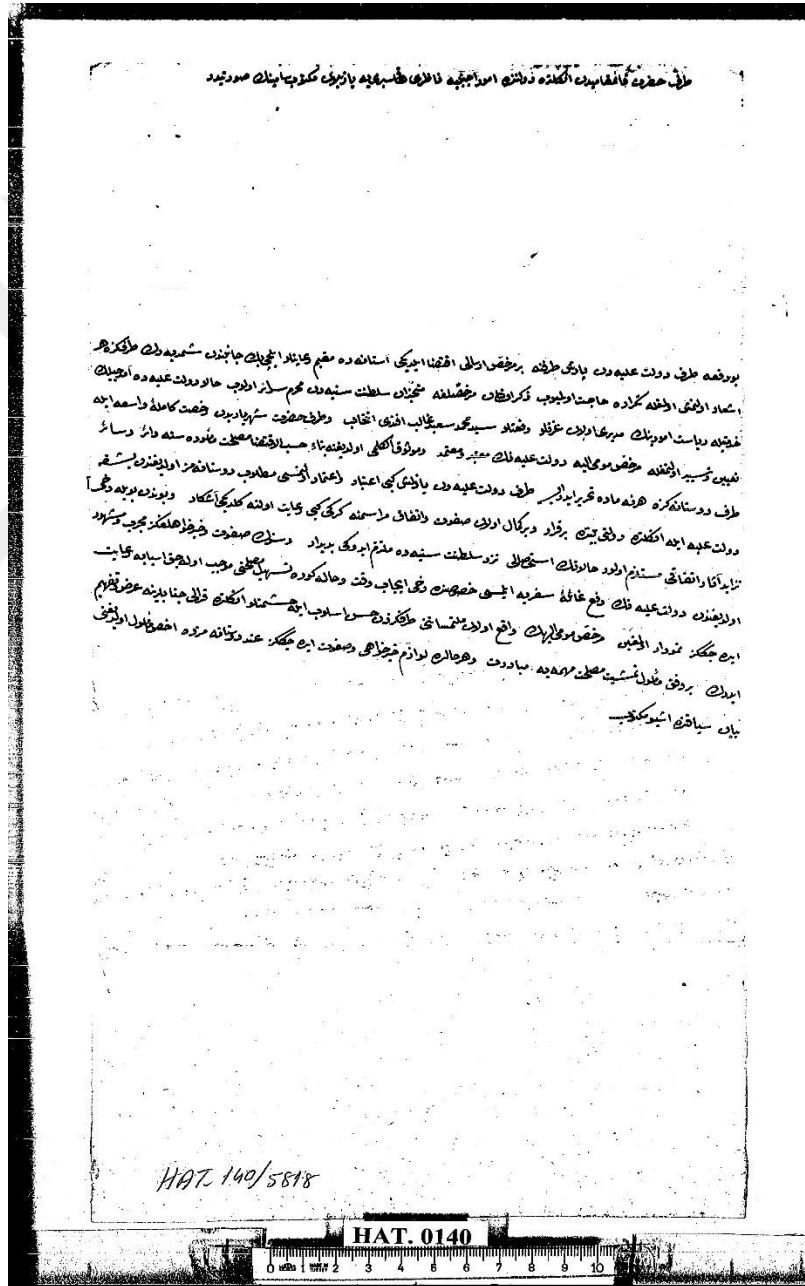 طرف حضرت قائممقامیدن انکلتره دولتنك امور اجنبیه ناظری همتلرینه یازیلان مکتوب سامینك صورتیدر
بو دفعه طرف دولت علیه دن پارسه طرفنه بر مرخص ارسالی اقتضا ایتدیکی آستانه ده مقیم رعایتلو ایلچی بك جانبندن طرفکزه
اشعار اولنمش اولمغله تکراره حاجت اولمیوب ذکر اولنان مرخصلغه سلطنت سنیه دن محرم اولوب حالا دولت علیه ده آمدجیلك
خدمتیله ریاست امورینك مدیری اولان عزتلو رفعتلو سید محمد سعید غالب افندی انتخاب وطرف حضرت شهریاریدن رخصت کامله واسعه ایله
تعیین وتسییر اولنمغله مرخص مومی الیه دولت علیه نك معتبر ومعتمد وموثوق الکلمی اولدیغنه بناء حسب الاقتضا مصلحت مأموره سنه دائر وسائر
طرف دوستانه کزه هر نه ماده تحریر ایدر ایسه طرف دولت علیه دن یازلمش کبی اعتبار واعتماد اولنمسی مطلوب دوستانه مز اولدیغندن بشقه
دولت علیه ایله انکلتره دولتی بیننده برقرار وبرکمال اولان صفوت واتفاق مراسمنه کرکی کبی رعایت اولنه کلدیکی آشکار وبوندن بویله دخی
تزاید آثار اتفاقی مستلزم اولور حالاتك استحصالی نزد سلطنت سنیه ده ملتزم ایدوکی بدیدار
اولدیغندن دولت علیه نك دفع غائله سفریه ایلمسی خصوصنده دخی ایجاب وقت وحاله کوره تسهیل مصلحتی موجب اوله جق اسبابه رعایت
ایده جککز نمودار اولمغین مرخص مومی الیهك واقع اولان ملتمساتنی طرفکزدن حسن اسلوب ایله حشمتلو انکلتره قرالی جنابلرینه عرض وتفهیم
ایدرك بر وفق مأمول تمشیت مصلحت مهمه یه مبادرت وهر حالده لوازم خیرخواهی وصفوت ایده جککز عند دوستانه مزده اخص مأمول اولدیغنی
بیان سیاقنده اشبو مکتوب